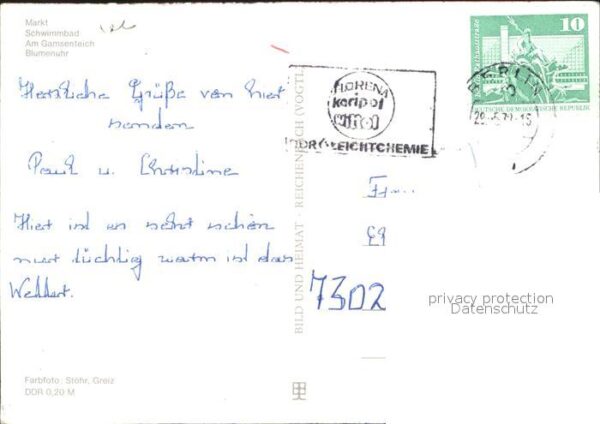 Markt
Schwimmbad
Am Gamsenteich
Blumenuhr
Herzliche Grüße von hier
senden
Paul u. Christine
Hier ist es sehr schön
nur tüchtig warm ist das
Wetter.
Farbfoto: Stöhr, Greiz
DDR 0,20 M
BILD UND HEIMAT · REICHENBACH (VOGTL
FLORENA
koripol
DDR LEICHTCHEMIE
BERLIN
10
DEUTSCHE DEMOKRATISCHE REPUBLIK
7302
privacy protection
Datenschutz